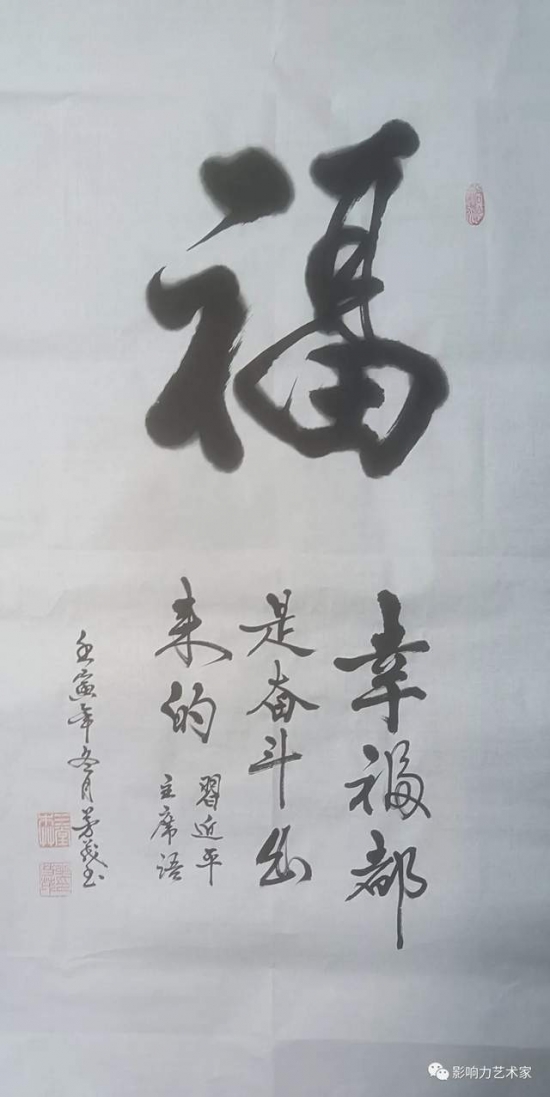 福
幸福都
是奋斗出
来的
習近平
主席语
壬寅年冬月
影响力艺术家